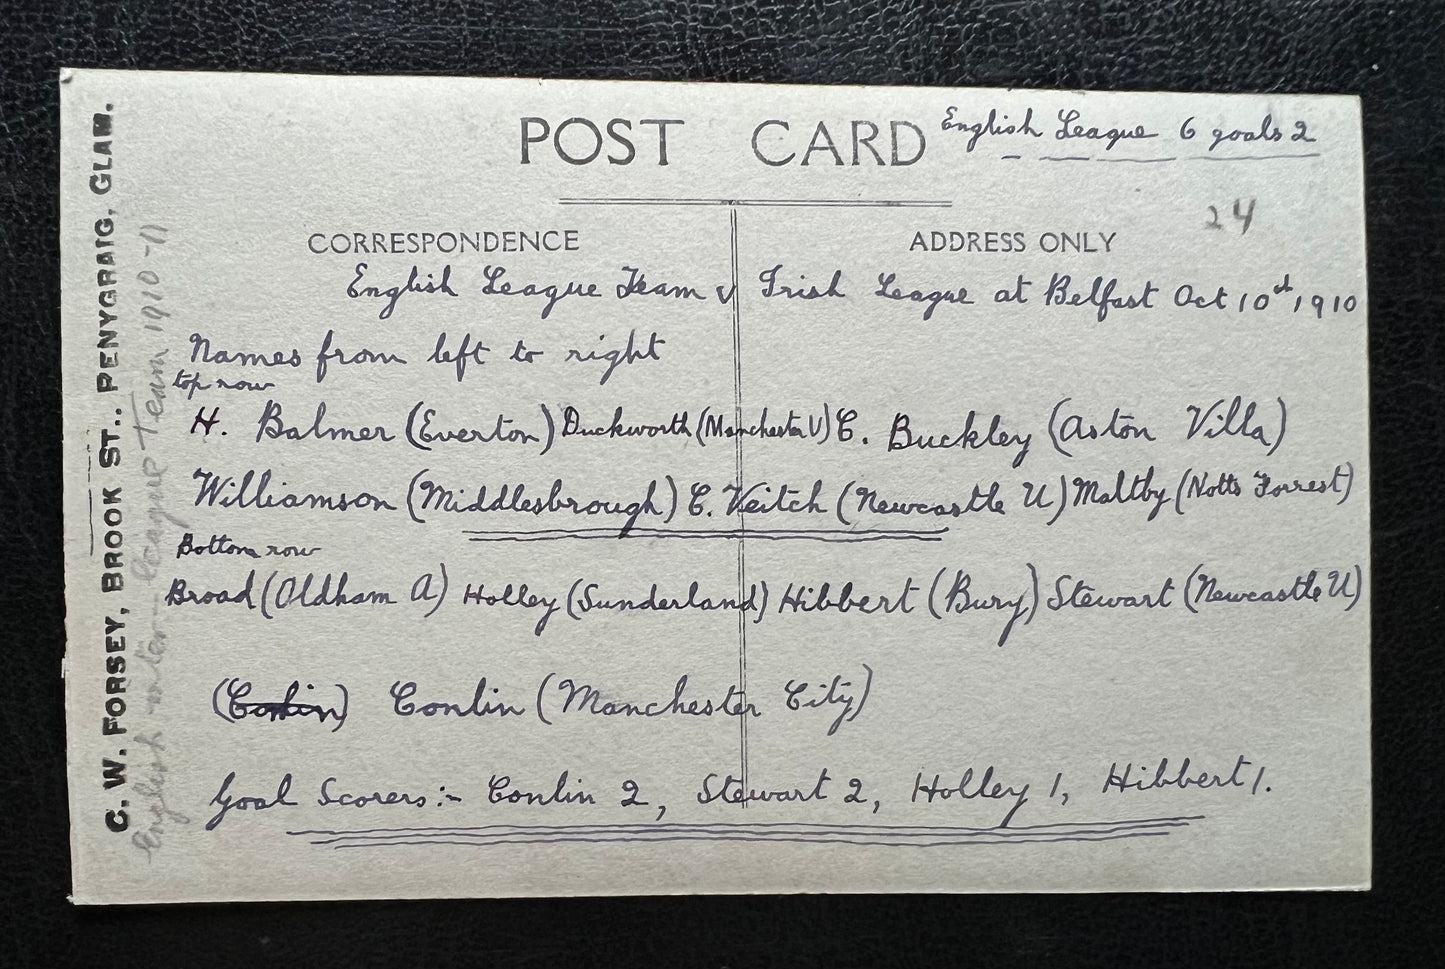 POST CARD
English League 6 goals 2
24
CORRESPONDENCE
ADDRESS ONLY
English League Team v Irish League at Belfast Oct 10th, 1910
Names from left to right
top row
H. Balmer (Everton) Duckworth (Manchester U) C. Buckley (Aston Villa)
Williamson (Middlesbrough) C. Veitch (Newcastle U) Maltby (Notts Forrest)
Bottom row
Broad (Oldham A) Holley (Sunderland) Hibbert (Bury) Stewart (Newcastle U)
(Conlin) Conlin (Manchester City)
Goal Scorers:- Conlin 2, Stewart 2, Holley 1, Hibbert 1.
C. W. FORSEY, BROOK ST., PENYGRAIG, GLAM.
English inter-league Team 1910-11